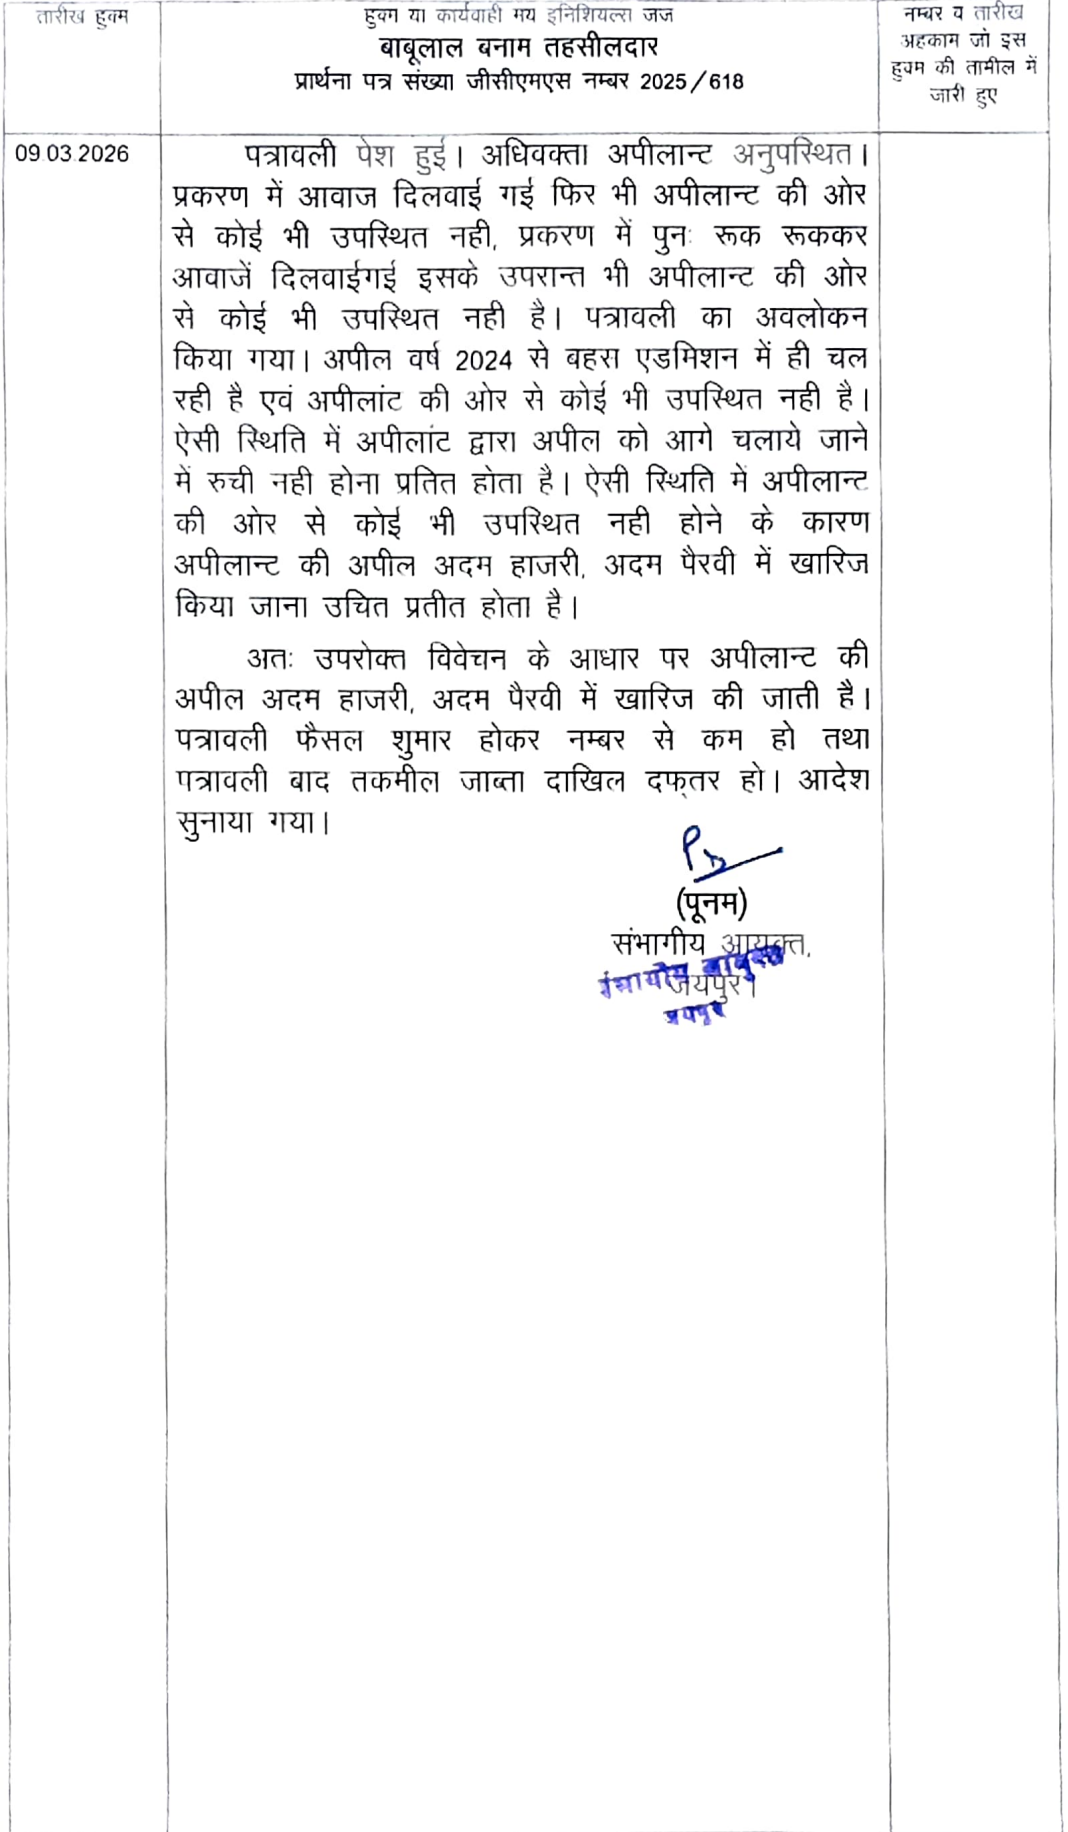 तारीख हुक्म
हुक्म या कार्यवाही मय इनिशियल्स जज
बाबूलाल बनाम तहसीलदार
प्रार्थना पत्र संख्या जीसीएमएस नम्बर 2025/618
नम्बर व तारीख
अहकाम जो इस
हुक्म की तामील में
जारी हुए
09.03.2026
पत्रावली पेश हुई। अधिवक्ता अपीलान्ट अनुपस्थित।
प्रकरण में आवाज दिलवाई गई फिर भी अपीलान्ट की ओर
से कोई भी उपस्थित नही, प्रकरण में पुनः रूक रूककर
आवाजें दिलवाईगई इसके उपरान्त भी अपीलान्ट की ओर
से कोई भी उपस्थित नही है। पत्रावली का अवलोकन
किया गया। अपील वर्ष 2024 से बहस एडमिशन में ही चल
रही है एवं अपीलांट की ओर से कोई भी उपस्थित नही है।
ऐसी स्थिति में अपीलांट द्वारा अपील को आगे चलाये जाने
में रुची नही होना प्रतित होता है। ऐसी स्थिति में अपीलान्ट
की ओर से कोई भी उपस्थित नही होने के कारण
अपीलान्ट की अपील अदम हाजरी, अदम पैरवी में खारिज
किया जाना उचित प्रतीत होता है।
अतः उपरोक्त विवेचन के आधार पर अपीलान्ट की
अपील अदम हाजरी, अदम पैरवी में खारिज की जाती है।
पत्रावली फैसल शुमार होकर नम्बर से कम हो तथा
पत्रावली बाद तकमील जाब्ता दाखिल दफ्तर हो। आदेश
सुनाया गया।
(पूनम)
संभागीय आयुक्त,
जयपुर।
संभागीय आयुक्त
जयपुर